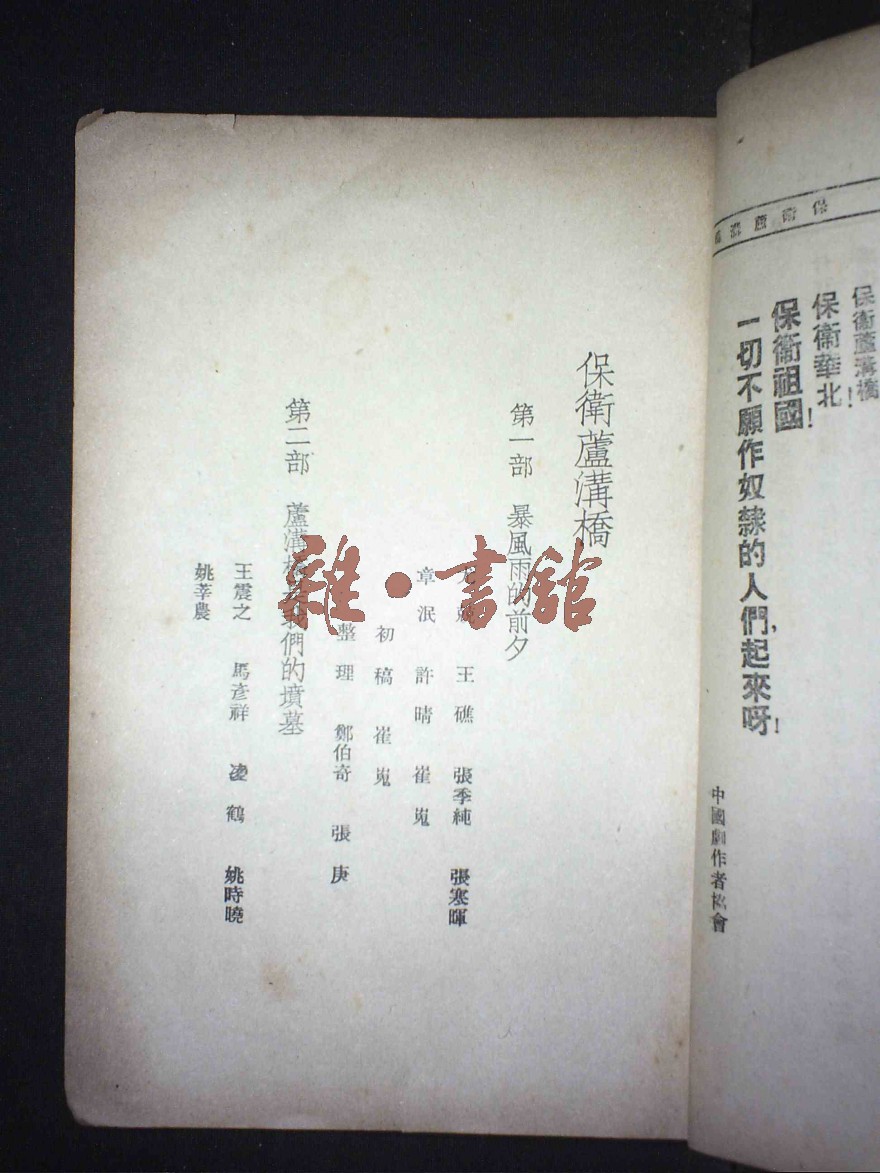 保衛蘆溝橋
保衛蘆溝橋！
保衛華北！
保衛祖國！
一切不願作奴隸的人們，起來呀！
中國劇作者協會
保衛蘆溝橋
第一部 暴風雨的前夕
王礁 張季純 張寒暉
章泯 許晴 崔嵬
初稿 崔嵬
整理 鄭伯奇 張庚
第二部 蘆溝 我們的墳墓
王震之 馬彥祥 凌鶴 姚時曉
姚莘農
雜·書館